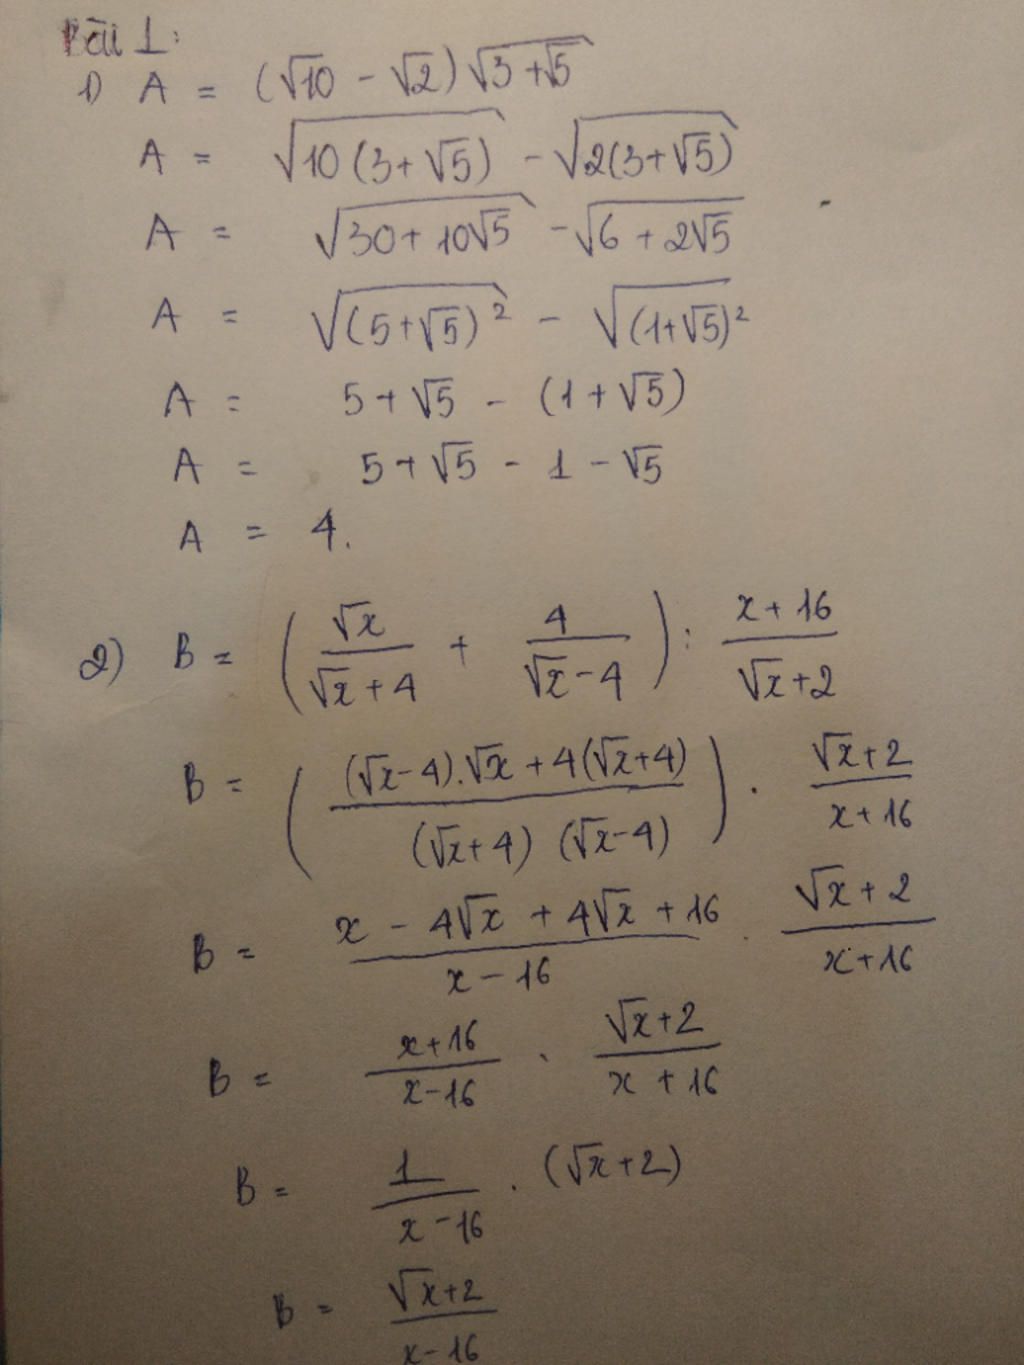 Bài 1:
1) A = (√10 - √2) √(3+√5)
A = √(10(3+√5)) - √(2(3+√5))
A = √(30+10√5) - √(6+2√5)
A = √((5+√5)²) - √((1+√5)²)
A = 5+√5 - (1+√5)
A = 5+√5 - 1 - √5
A = 4.
2) B = (√x/(√x+4) + 4/(√x-4)) : (x+16)/(√x+2)
B = (((√x-4).√x + 4(√x+4))/((√x+4) (√x-4))) . (√x+2)/(x+16)
B = (x - 4√x + 4√x + 16)/(x-16) . (√x+2)/(x+16)
B = (x+16)/(x-16) . (√x+2)/(x+16)
B = 1/(x-16) . (√x+2)
B = (√x+2)/(x-16)